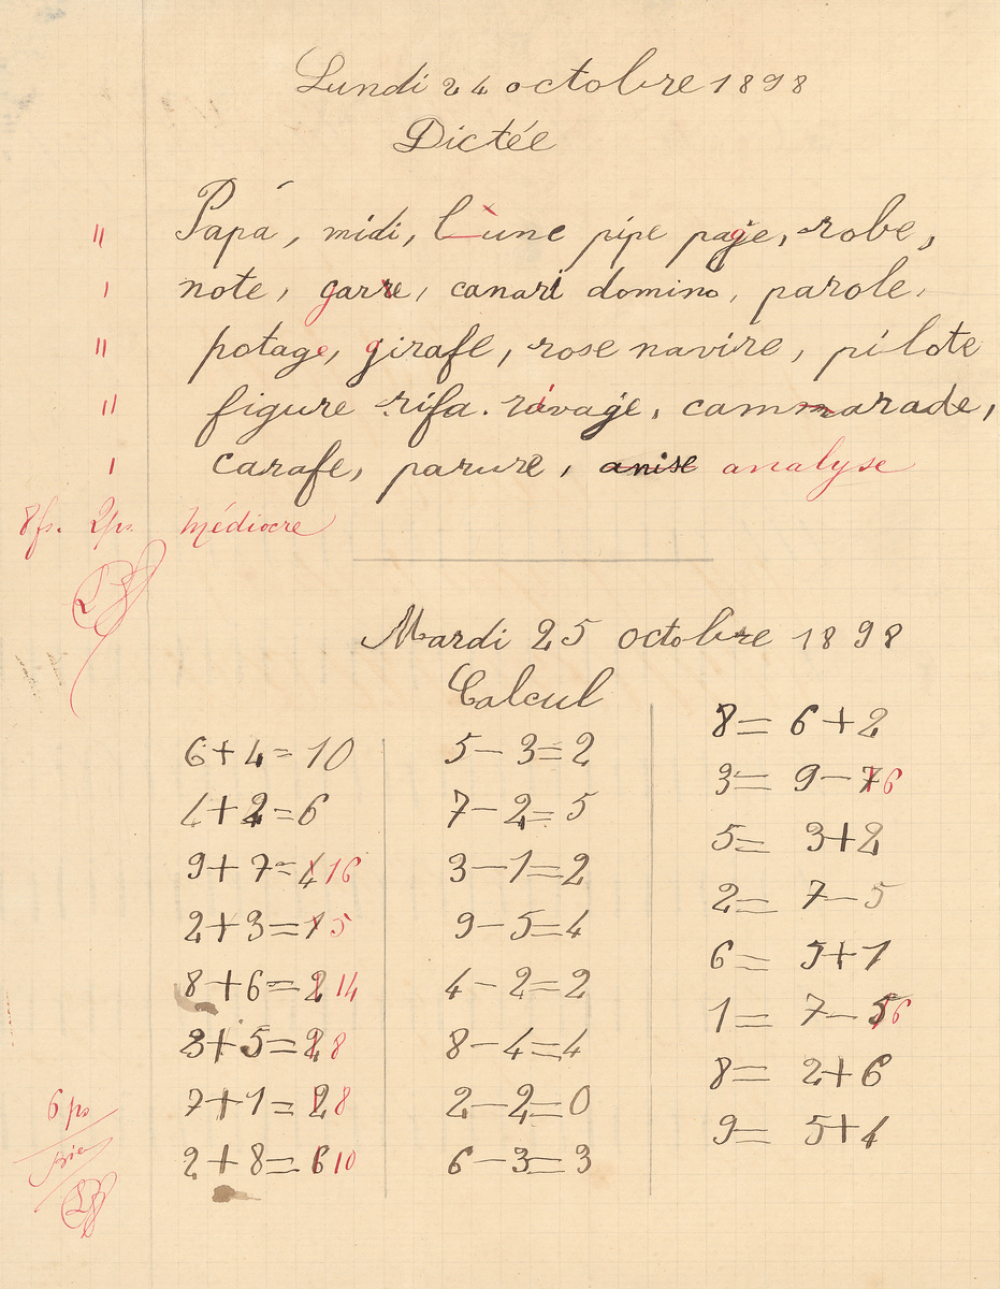 Lundi 24 octobre 1898
Dictée
" Papá, midi, l'une pipe page, robe,
' note, garre, canari domino, parole,
" potage, girafe, rose navire, pilote
" figure rifa. rávage, cammarade,
' carafe, parure, anise analyse
8 fs. 2 ps. médiocre
Mardi 25 octobre 1898
Calcul
6+4=10
4+2=6
9+7=4 16
2+3=1 5
8+6=2 14
3+5=2 8
7+1=2 8
2+8=6 10
5-3=2
7-2=5
3-1=2
9-5=4
4-2=2
8-4=4
2-2=0
6-3=3
8=6+2
3=9-7 6
5=3+2
2=7-5
6=5+1
1=7-5 6
8=2+6
9=5+4
6 ps
bien